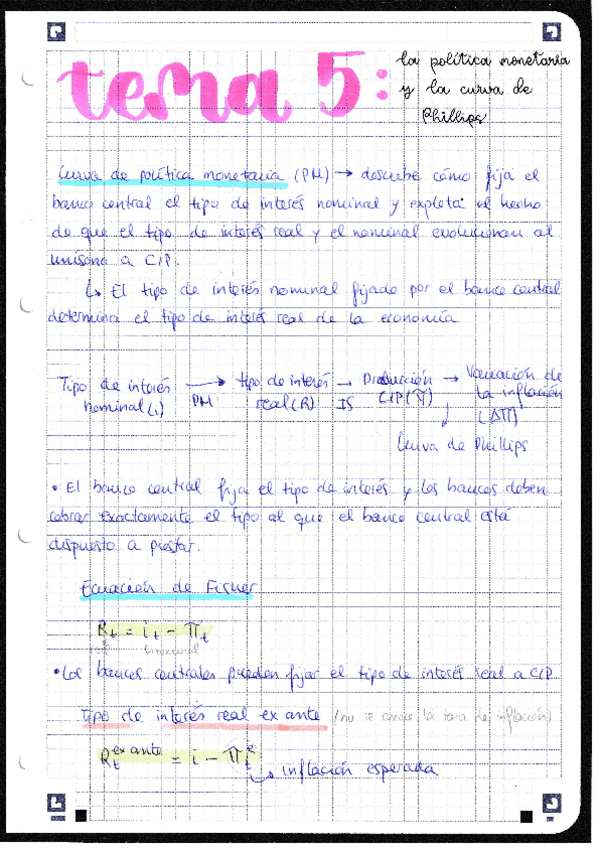 tema 5: la política monetaria
y la curva de
Phillips
Curva de política monetaria (PM) → describe cómo fija el
banco central el tipo de interés nominal y explota el hecho
de que el tipo de interés real y el nominal evolucionan al
unísono a C/P.
↳ El tipo de interés nominal fijado por el banco central
determina el tipo de interés real de la economía
Tipo de interés nominal (i) → PM tipo de interés real (R) → IS Producción C/P (Ỹ) → Variación de la inflación (ΔΠ)
↓
Curva de Phillips
• El banco central fija el tipo de interés y los bancos deben
cobrar exactamente el tipo al que el banco central está
dispuesto a prestar.
Ecuación de Fisher
Rt = it - Πt
real nominal
• Los bancos centrales pueden fijar el tipo de interés real a C/P
Tipo de interés real ex ante (no se conoce la tasa de inflación)
Rt^ex ante = i - Πt^e
↳ inflación esperada